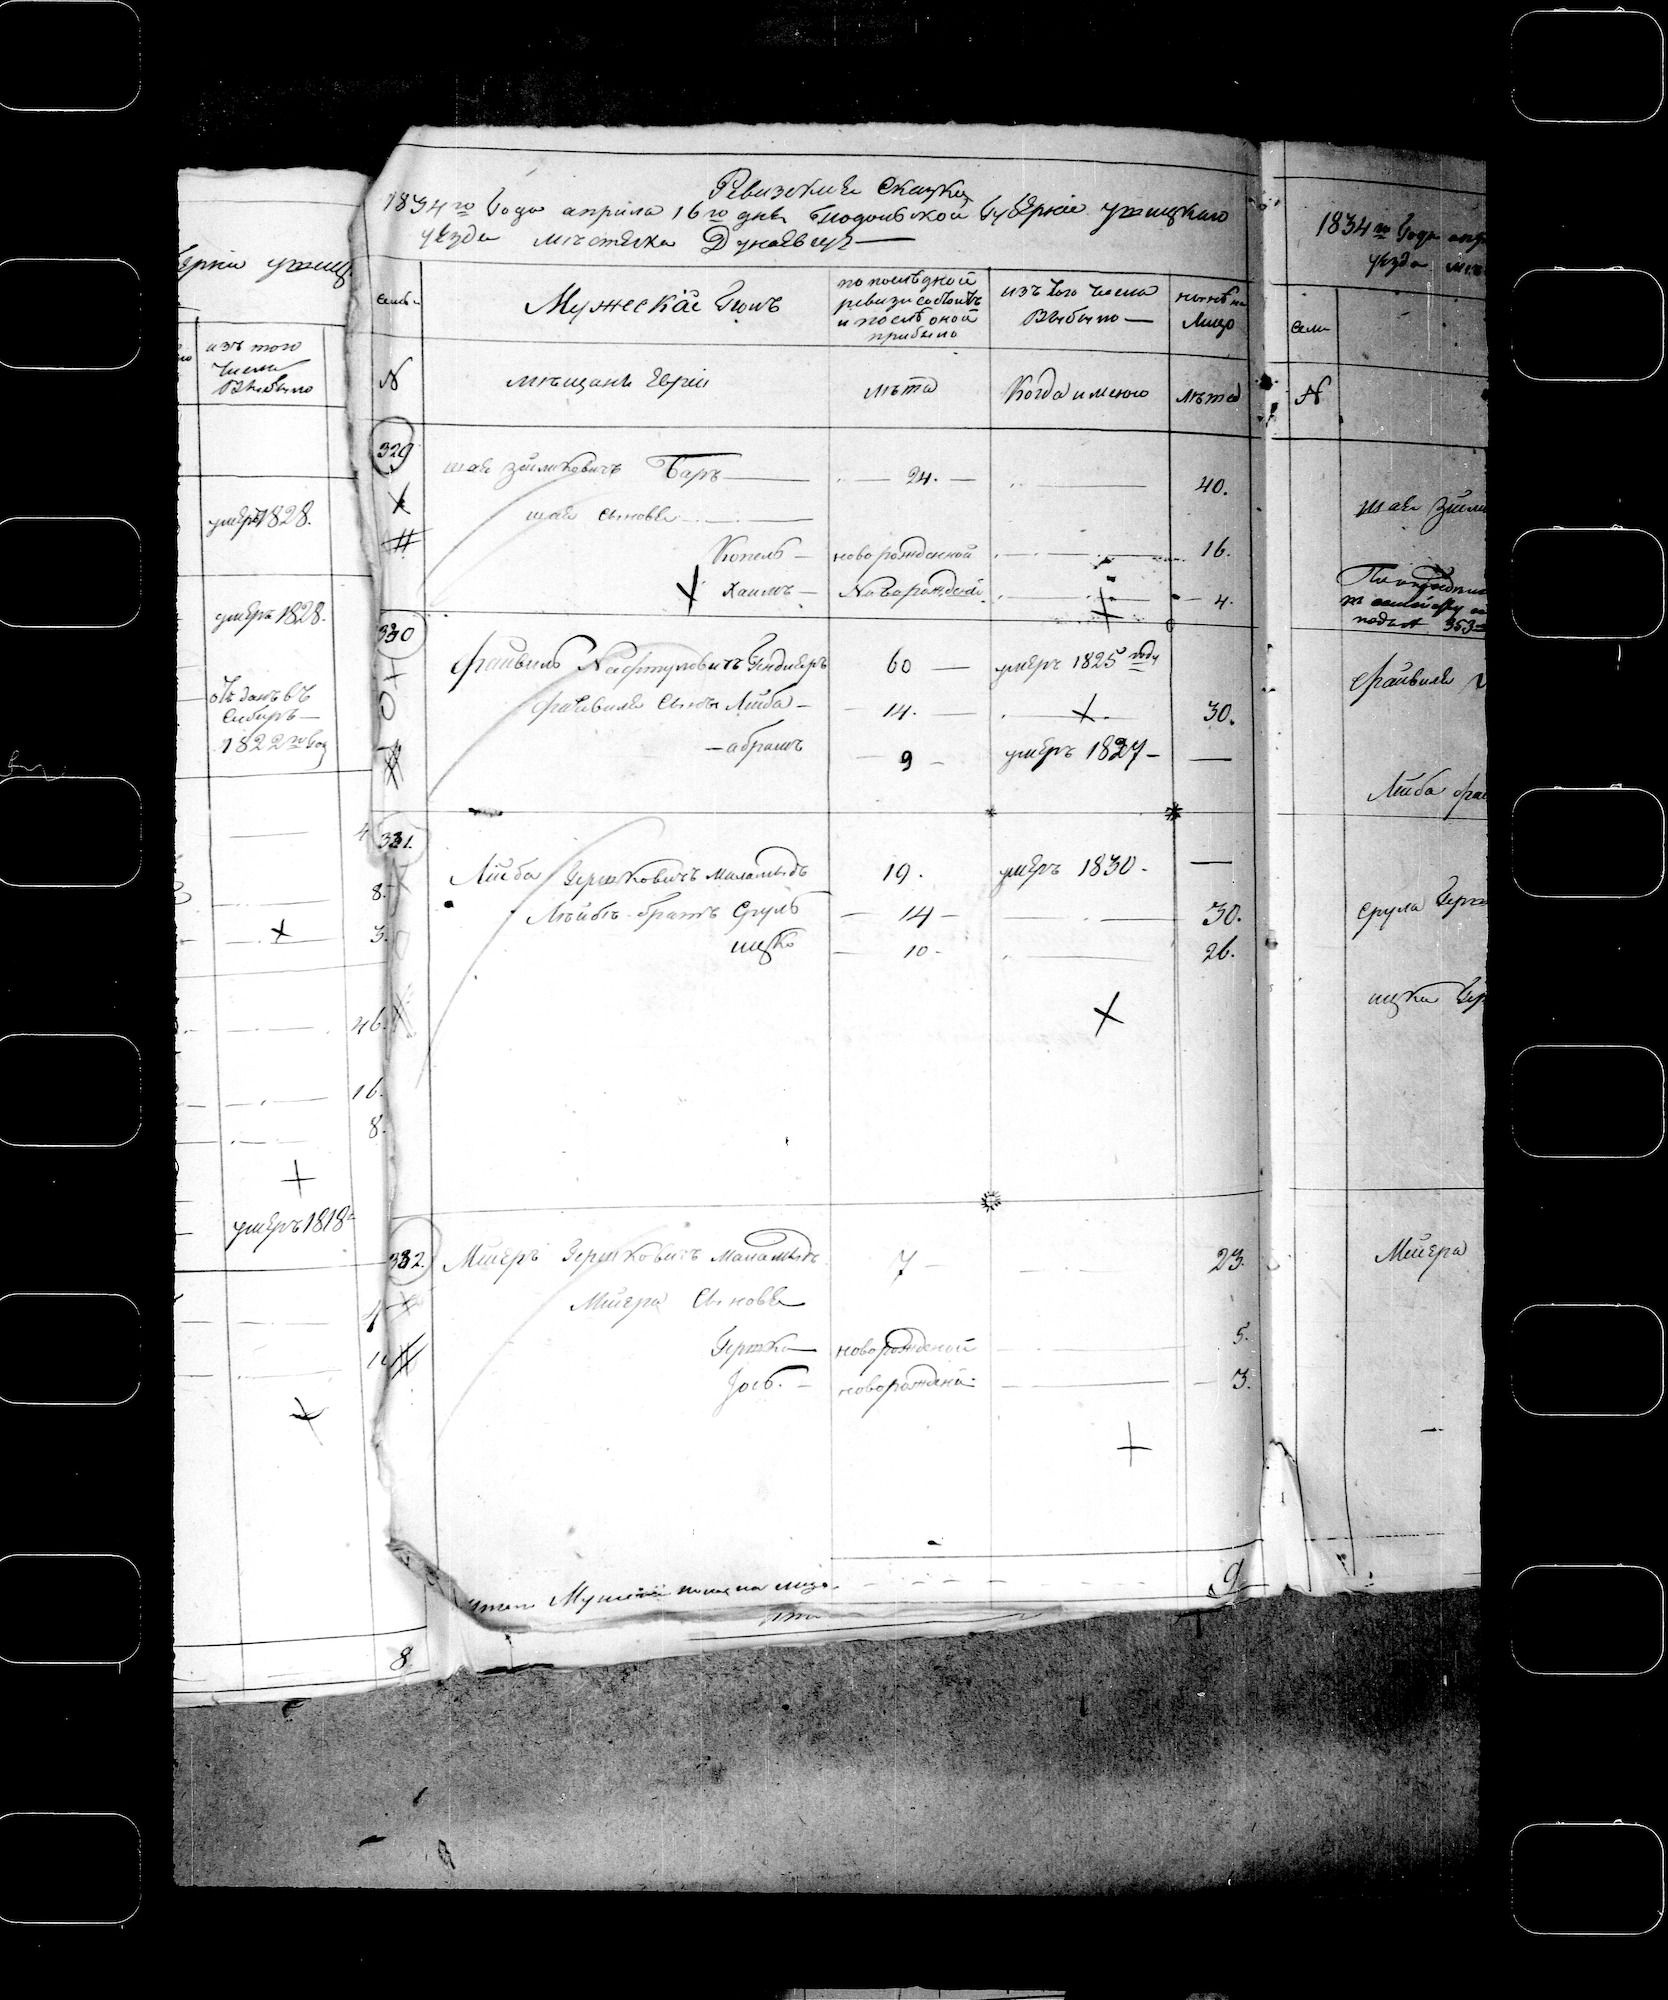 Ревизская Сказка
1834го Года апрѣля 16го дня Подольской Губерніи ушицкаго
уѣзда мѣстечка Дунаевецъ
Семьи
Мужескай Полъ
по послѣдной
ревизи состоитъ
и послѣ оной
прибыло
изъ того числа
Выбыло
нынѣ на
Лицо
N
мѣщане Евреи
лѣта
Когда имено
лѣта
329
шая Зейликовичъ Баръ 24. 40.
шаи сыновя
Копель новорожденой 16.
Хаимъ Новорожденой 4.
330
Файвиль Нафтуловичъ 60 умеръ 1825 году
Файвиля сыны Лейба 14. 30.
абрамъ 9 умеръ 1827
331.
Лейба Гершковичъ Маламыдъ 19. умеръ 1830.
Лейбы братъ Сруль 14 30.
ицко 10. 26.
332.
Мееръ Гершковичъ Маламыдъ 7 23.
Меера Сыновя
Гершко новорожденой 5.
Іось. новорождени. 3.
Итого Мужеска пола на лицо 9
ерніи ушиц
изъ того
числа
Выбыло
умеръ 1828.
умеръ 1828.
Отданъ въ
Сибиръ
1822го Год
4
8.
3.
46.
16.
8.
умеръ 1818
4
8
1834го Года апр
уѣзда мѣс
Семи
N
шая Зейли
353
Файвиля
Лейба Фай
Срула Герш
ицка Гер
Меера